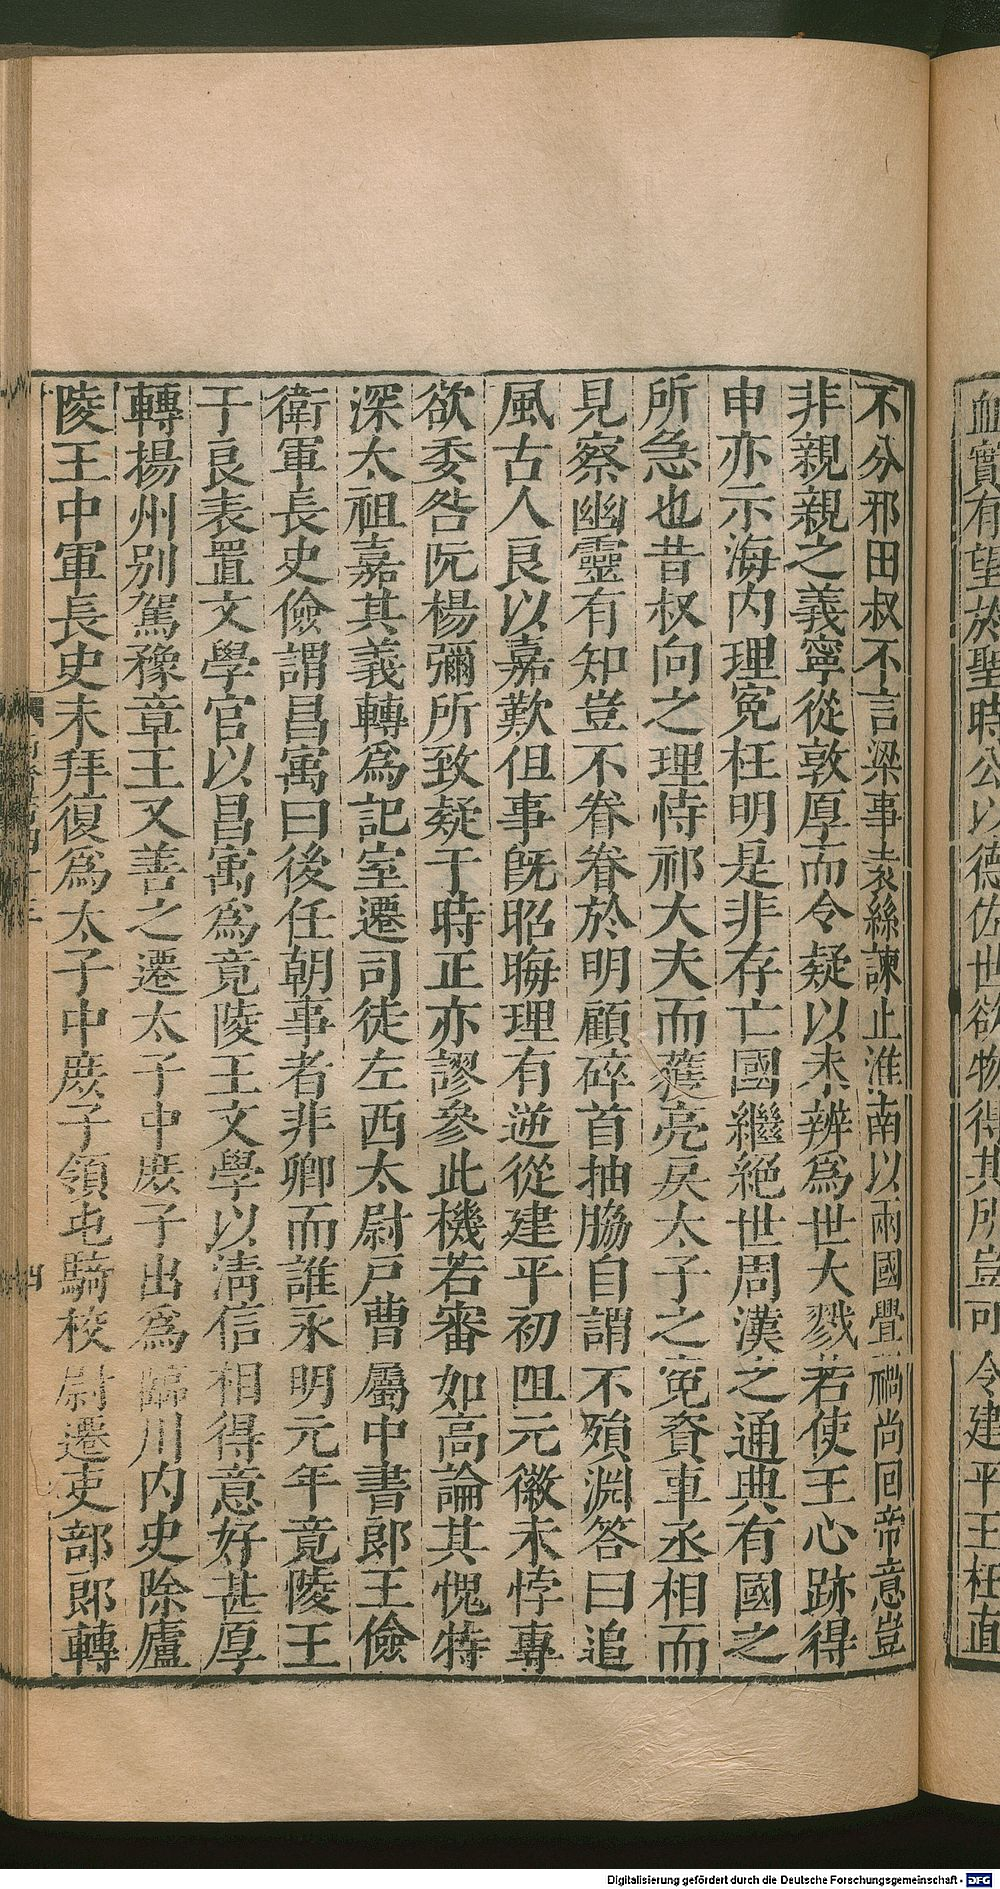 血實有望於聖時公以德佐世欲物得其所豈可令建平王枉直
不分邪田叔不言梁事袁絲諫止淮南以兩國舋禍尚回帝意豈
非親親之義寧從敦厚而令疑以未辨爲世大戮若使王心跡得
申亦示海内理寃枉明是非存亡國繼絕世周漢之通典有國之
所急也昔叔向之理恃祁大夫而獲亮戾太子之寃資車丞相而
見察幽靈有知豈不眷眷於明顧碎首抽脇自謂不殞淵答曰追
風古人良以嘉歎但事旣昭晦理有逆從建平初阻元徽未悖專
欲委咎阮楊彌所致疑于時正亦謬參此機若審如高論其愧特
深太祖嘉其義轉爲記室遷司徒左西太尉戸曹屬中書郎王儉
衛軍長史儉謂昌寓曰後任朝事者非卿而誰永明元年竟陵王
子良表置文學官以昌寓爲竟陵王文學以清信相得意好甚厚
轉揚州別駕豫章王又善之遷太子中庶子出爲臨川内史除廬
陵王中軍長史未拜復爲太子中庶子領屯騎校尉遷吏部郎轉
四
Digitalisierung gefördert durch die Deutsche Forschungsgemeinschaft - DFG